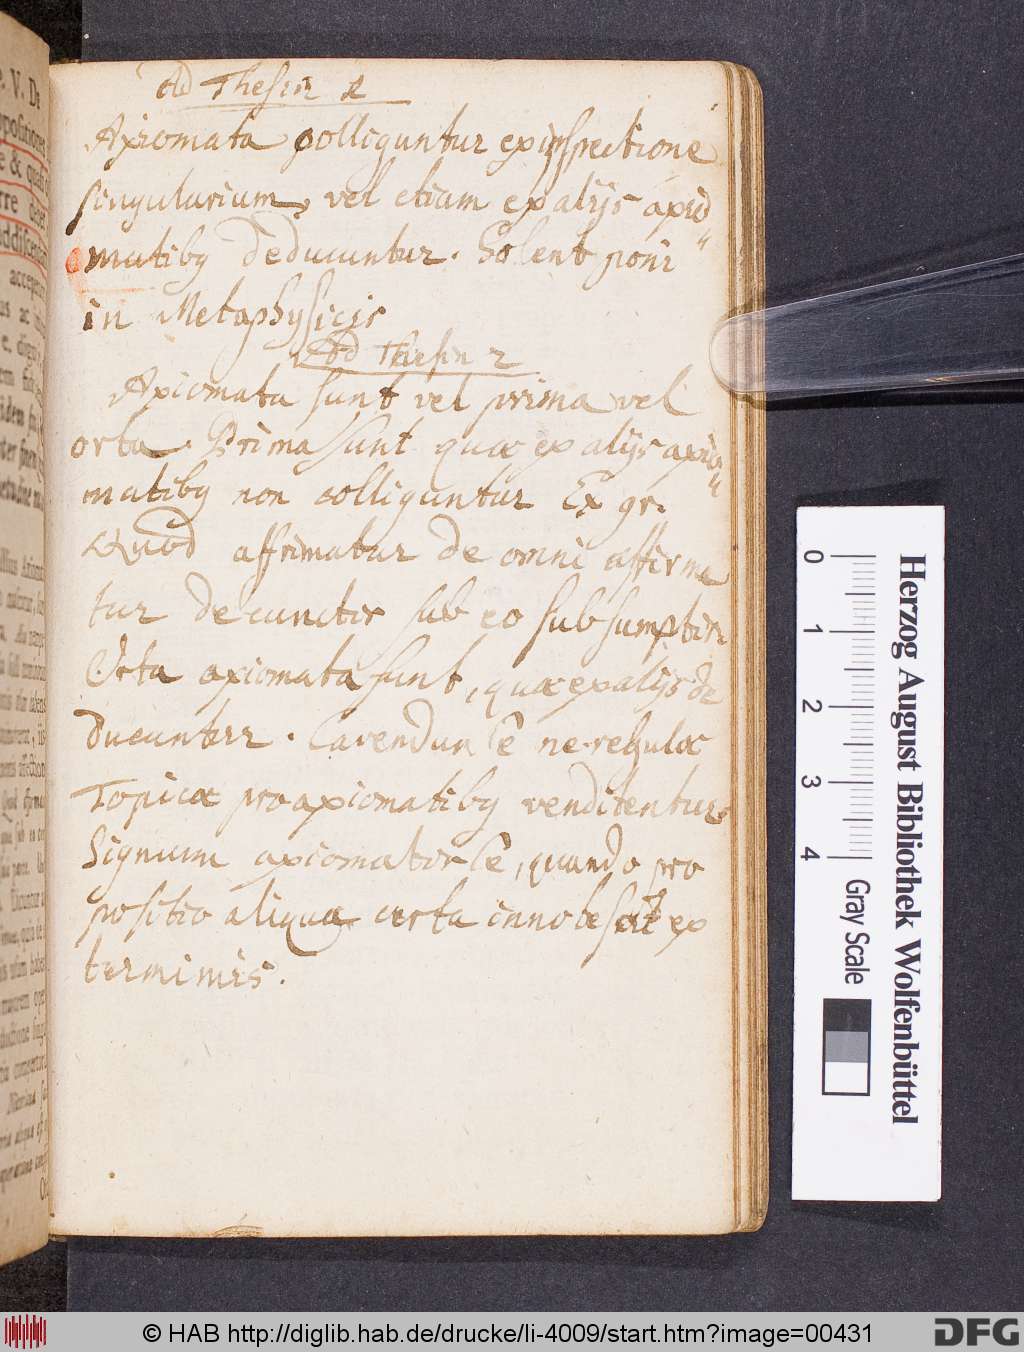 ad Thesin 1
Axiomata colliguntur ex inspectione
singularium, vel etiam ex alijs axio
matibq deducuntur. Solent poni
in Metaphysicis
Ad Thesin 2
Axiomata sunt vel prima vel
orta. Prima sunt quæ ex alijs axio
matibq non colliguntur Ex gr.
Quod affirmatur de omni affirma
tur de cunctis sub eo subsumptis
Orta axiomata sunt, quæ ex alijs de
ducuntur. Cavendum ne regulæ
Topicæ pro axiomatibq venditentur
Signum axiomatis ē, quando pro
positio aliqua certa innotescit ex
terminis.
Herzog August Bibliothek Wolfenbüttel
0 1 2 3 4
Gray Scale
© HAB http://diglib.hab.de/drucke/li-4009/start.htm?image=00431
DFG